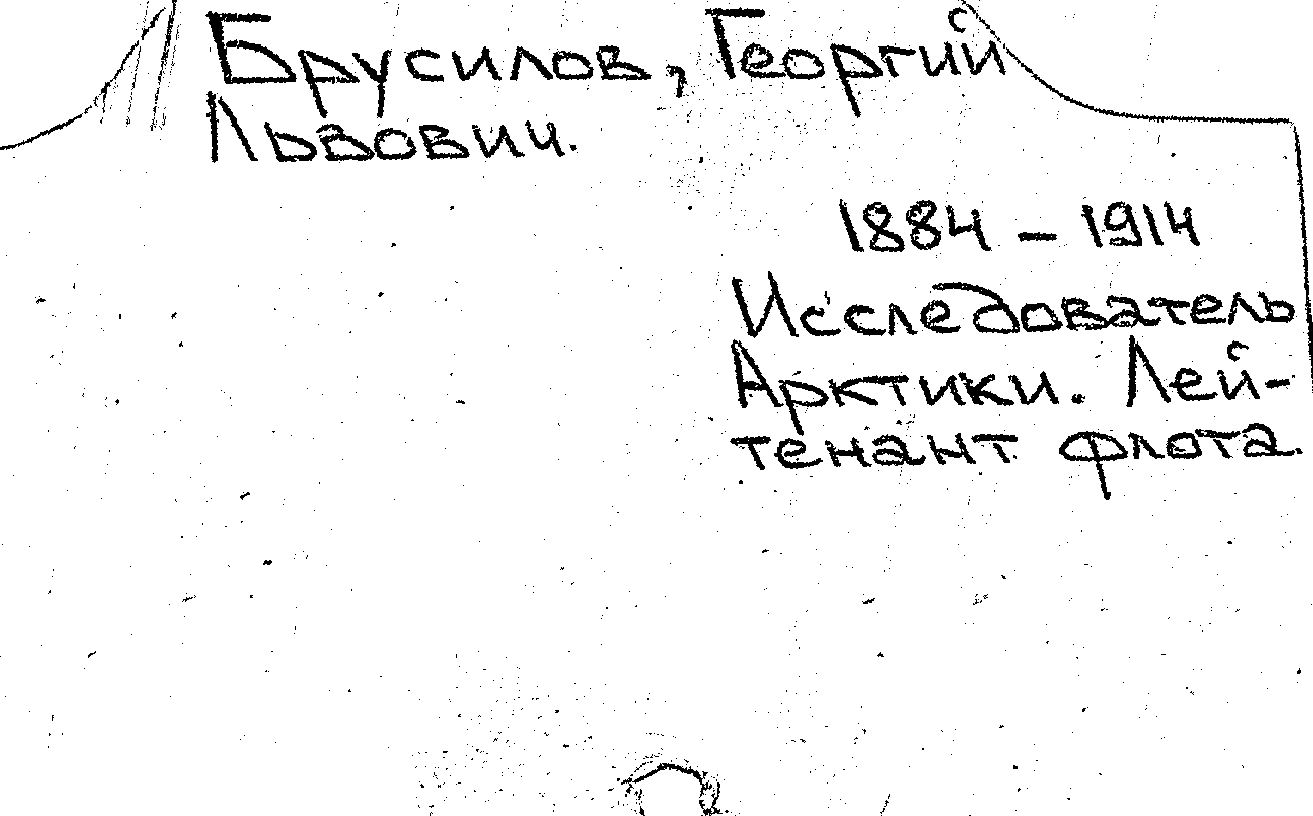 Брусилов, Георгий
Львович.
1884 - 1914
Исследователь
Арктики. Лей-
тенант флота.